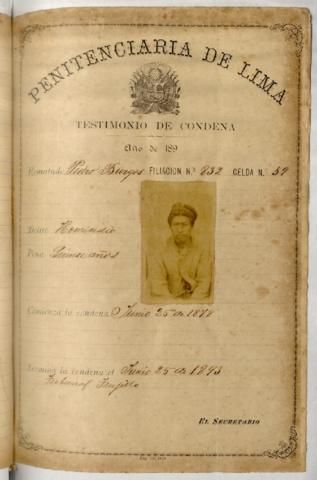 PENITENCIARIA DE LIMA
TESTIMONIO DE CONDENA
Año de 189
Rematado Pedro Burgos FILIACION N.º 832 CELDA N.º 59
Delito Homicidio
Pena Quince años
Comienza la condena Junio 25 de 1878
Termina la condena el Junio 25 de 1893
Tribunal Trujillo
EL SECRETARIO